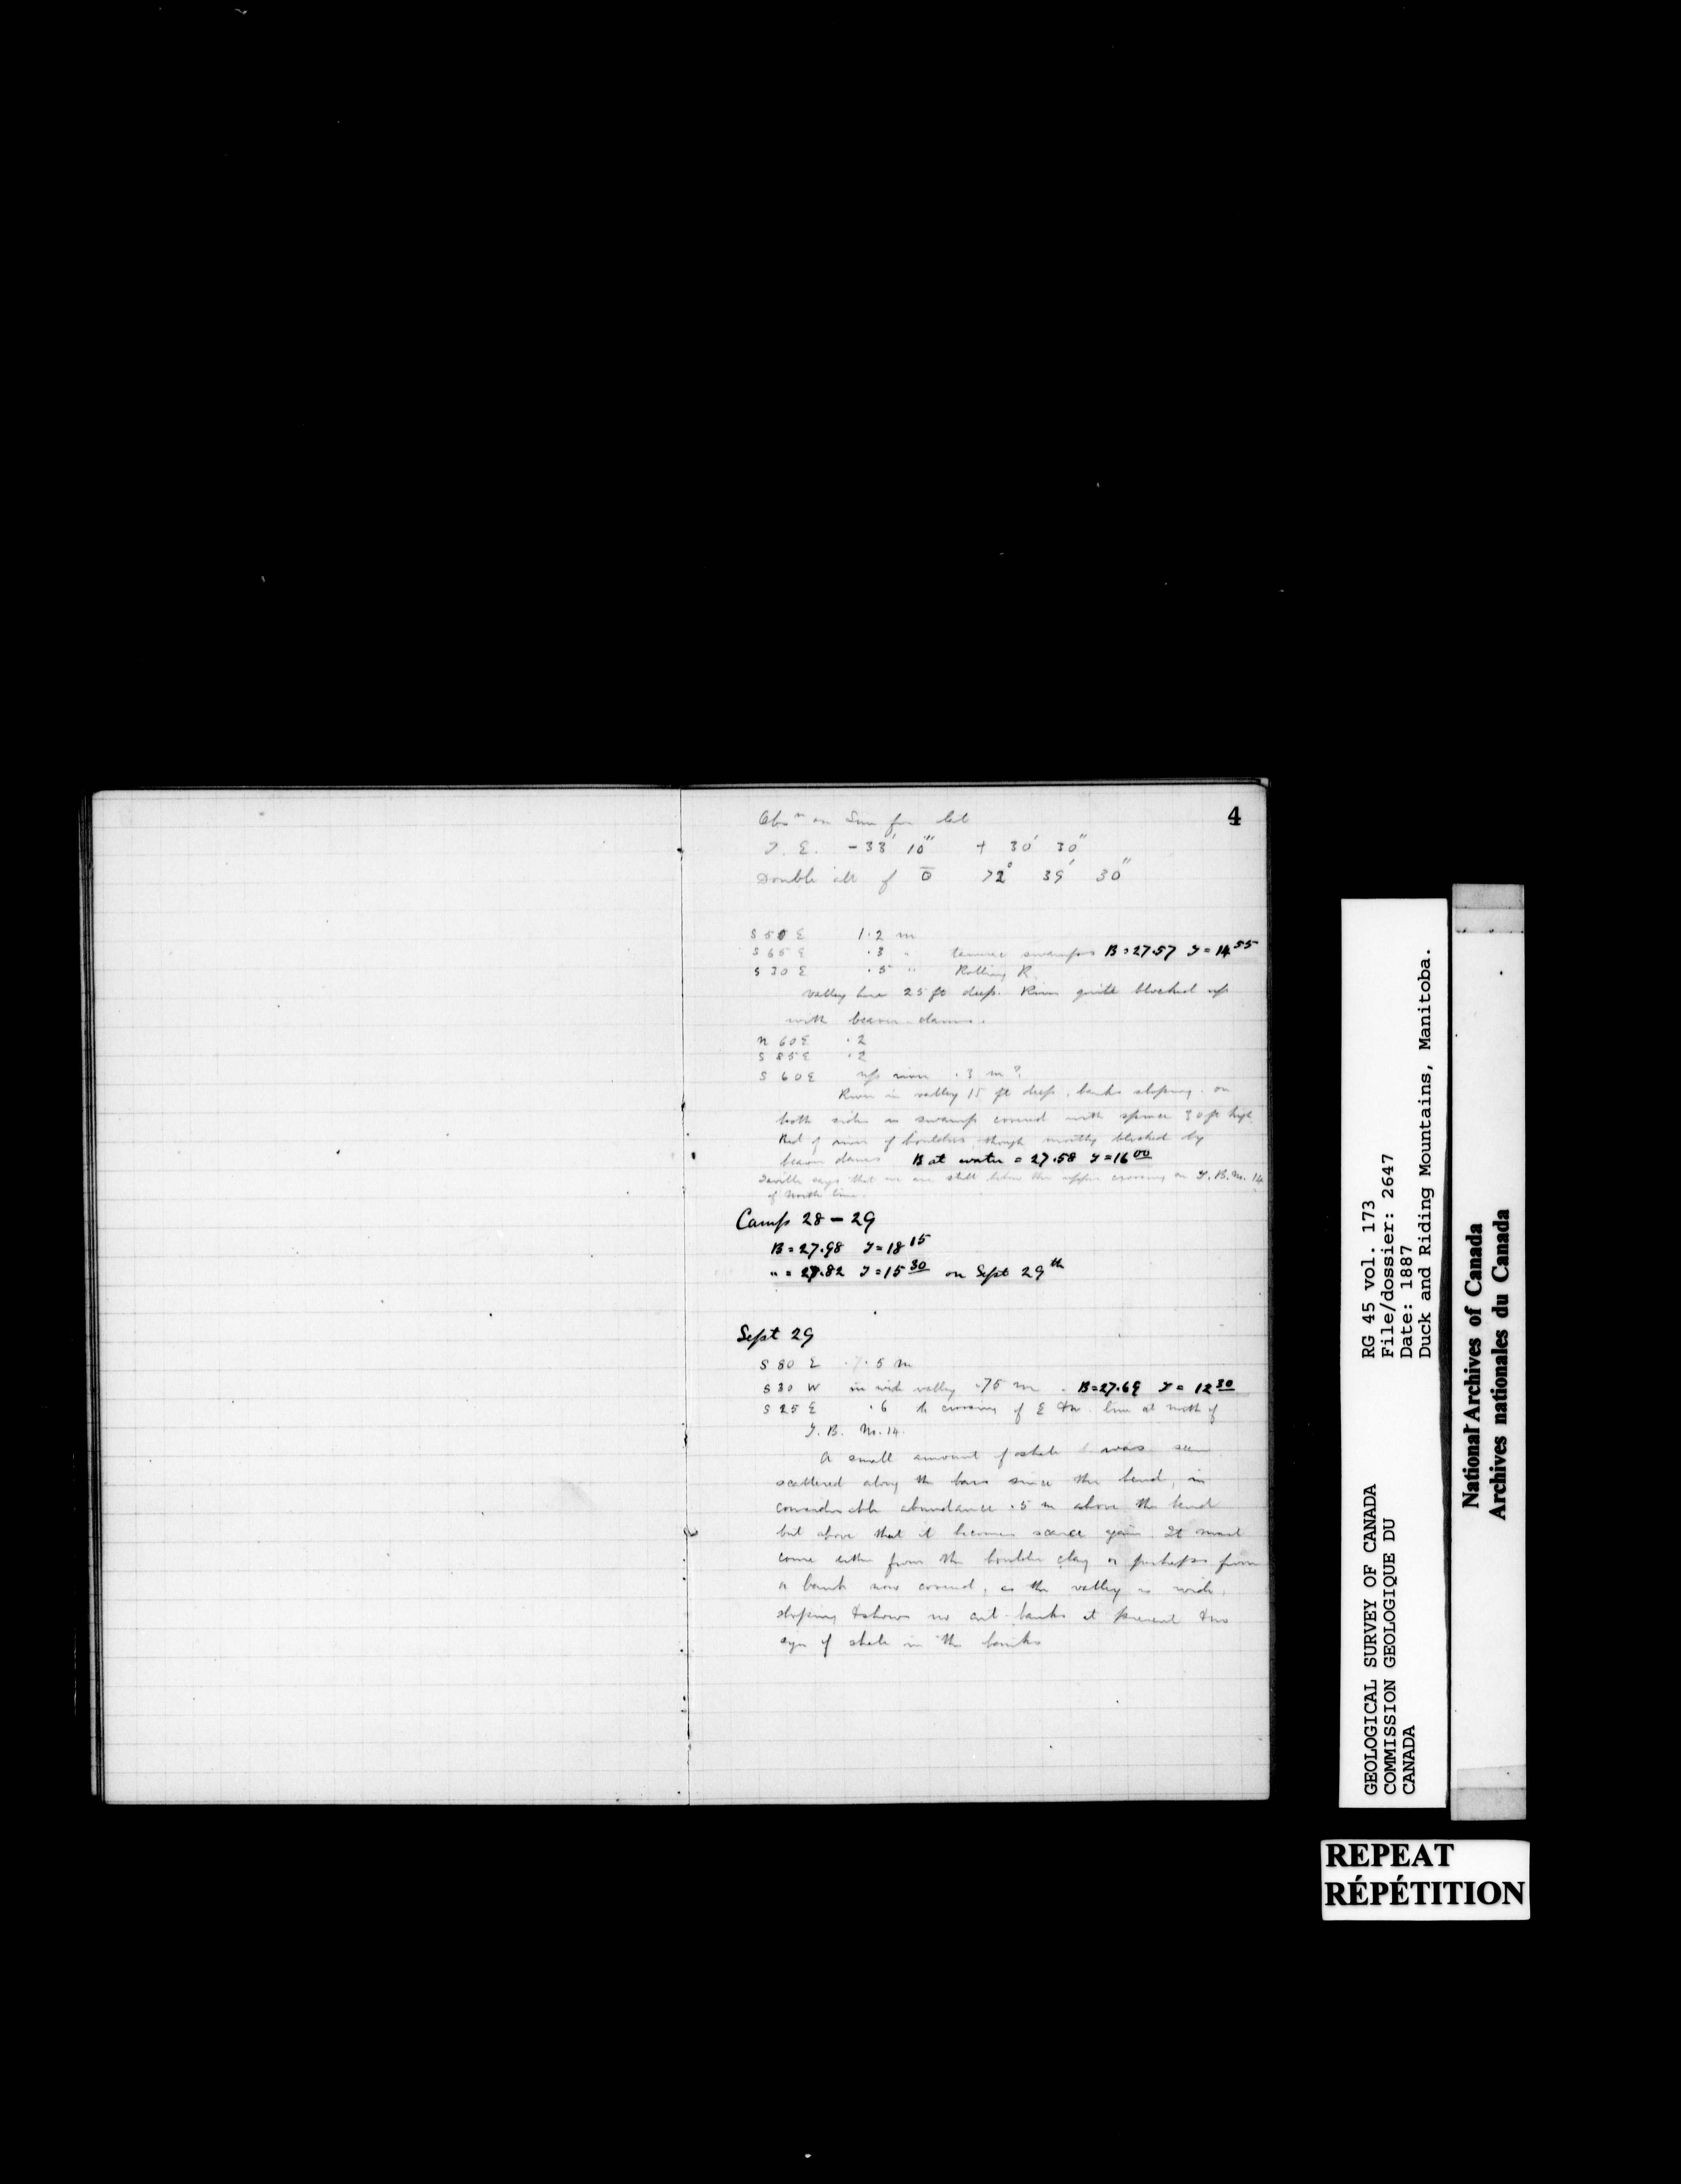 4
Obsⁿ on Sun for lat
I. E. -33' 10" + 30' 30"
Double alt of O 72° 39' 30"
S 50 E 1.2 m
S 65 E .3 " swamps B=27.57 T=14 55
S 30 E .5 " Rolling R.
valley here 25 ft deep. River quite blocked up
with beaver dams.
N 60 E .2
S 85 E .2
S 60 E up river .3 m?
River in valley 15 ft deep, banks sloping, on
both sides is swamp covered with spruce 30 ft high
Bed of river of boulders though mostly blocked by
beaver dams B at water = 27.58 T=16 00
says that we are still below the upper crossing on T.B.M. 14
of North line.
Camp 28-29
B=27.98 T=18 15
" = 27.82 T=15 30 on Sept 29th
Sept 29
S 80 E .5 m
S 30 W in wide valley .75 m. B=27.69 T=12 30
S 25 E .6 to crossing of E & W. line at north of
T. B. M. 14.
A small amount of shale was seen
scattered along the bars since the bend, in
considerable abundance .5 m above the bend
but above that it becomes scarce again. It must
come either from the boulder clay or perhaps from
a bank now covered, as the valley is wide,
sloping & shows no cut banks at present & no
sign of shale in the banks
GEOLOGICAL SURVEY OF CANADA
COMMISSION GEOLOGIQUE DU
CANADA
RG 45 vol. 173
File/dossier: 2647
Date: 1887
Duck and Riding Mountains, Manitoba.
National Archives of Canada
Archives nationales du Canada
REPEAT
RÉPÉTITION